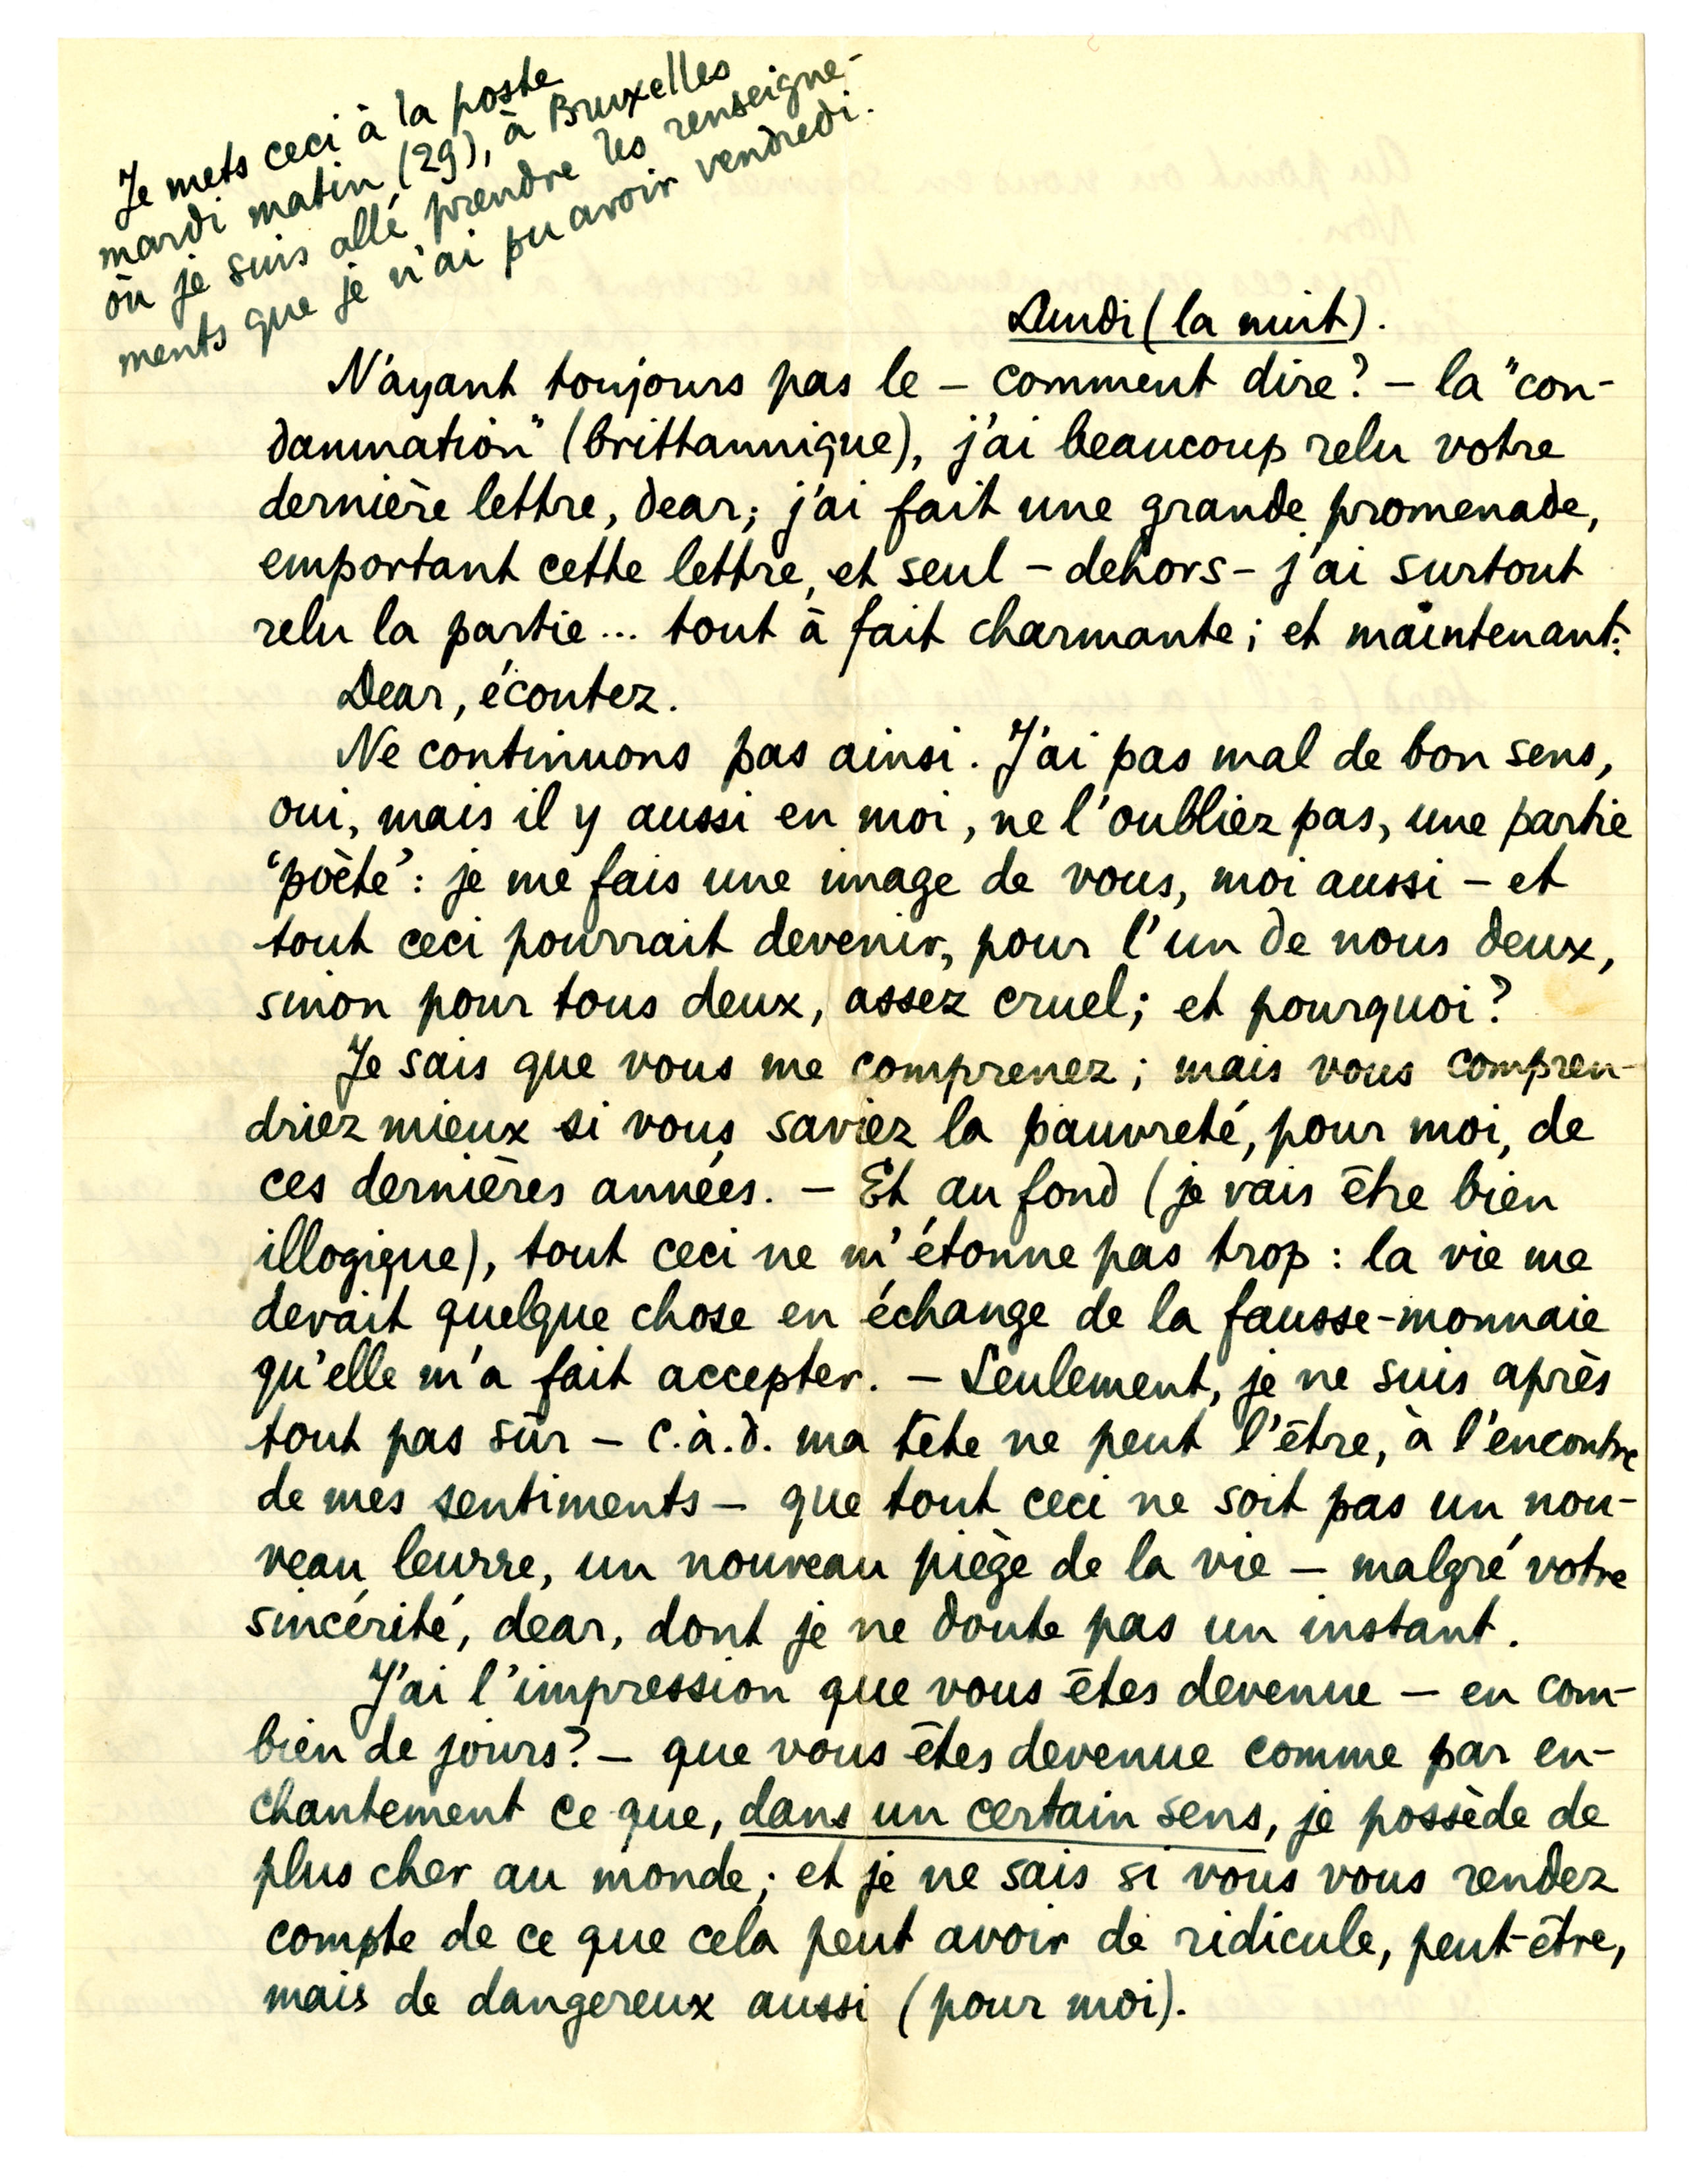 Je mets ceci à la poste
mardi matin (29), à Bruxelles
où je suis allé prendre les renseigne-
ments que je n'ai pu avoir vendredi.
Lundi (la nuit).
N'ayant toujours pas le – comment dire? – la "con-
damnation" (brittannique), j'ai beaucoup relu votre
dernière lettre, dear; j'ai fait une grande promenade,
emportant cette lettre, et seul – dehors – j'ai surtout
relu la partie... tout à fait charmante; et maintenant:
Dear, écoutez.
Ne continuons pas ainsi. J'ai pas mal de bon sens,
oui, mais il y aussi en moi, ne l'oubliez pas, une partie
'poète': je me fais une image de vous, moi aussi – et
tout ceci pourrait devenir, pour l'un de nous deux,
sinon pour tous deux, assez cruel; et pourquoi?
Je sais que vous me comprenez; mais vous compren-
driez mieux si vous saviez la pauvreté, pour moi, de
ces dernières années. – Et au fond (je vais être bien
illogique), tout ceci ne m'étonne pas trop: la vie me
devait quelque chose en échange de la fausse-monnaie
qu'elle m'a fait accepter. – Seulement, je ne suis après
tout pas sûr – c.à.d. ma tête ne peut l'être, à l'encontre
de mes sentiments – que tout ceci ne soit pas un nou-
veau leurre, un nouveau piège de la vie – malgré votre
sincérité, dear, dont je ne doute pas un instant.
J'ai l'impression que vous êtes devenue – en com-
bien de jours? – que vous êtes devenue comme par en-
chantement ce que, dans un certain sens, je possède de
plus cher au monde; et je ne sais si vous vous rendez
compte de ce que cela peut avoir de ridicule, peut-être,
mais de dangereux aussi (pour moi).